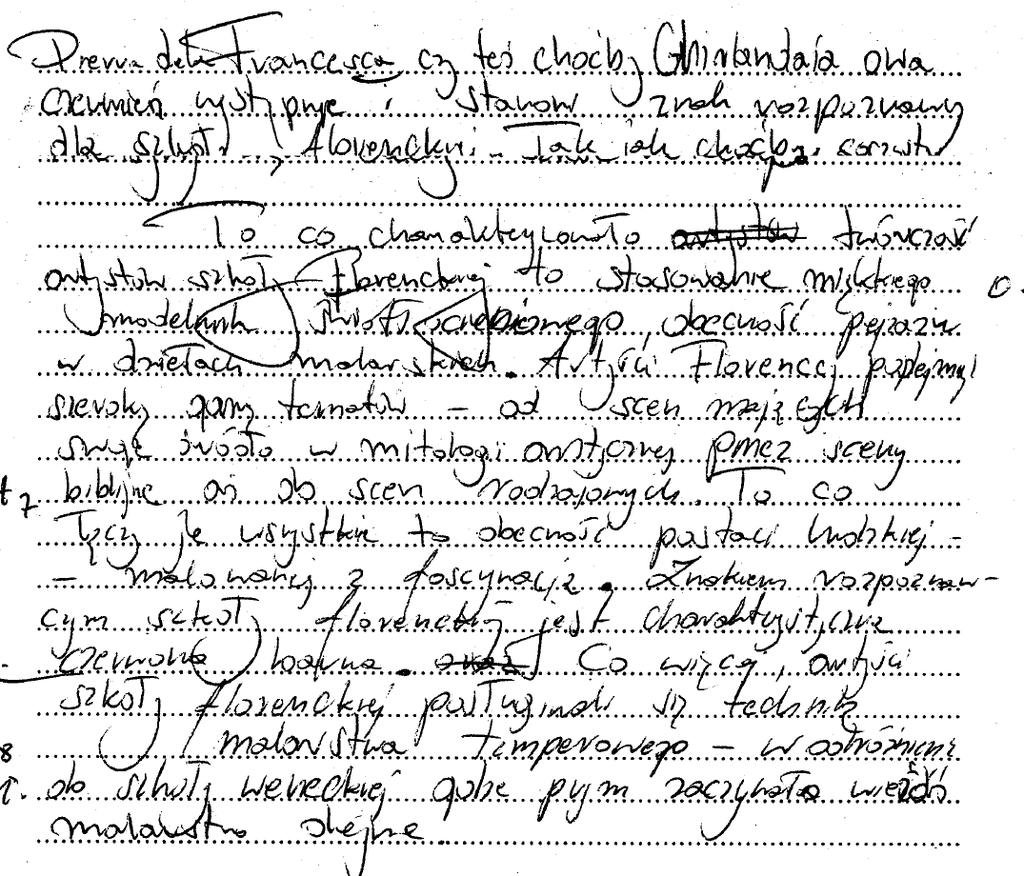 Pierra della Francesca czy też choćby Ghirlandaia owa
czerwień występuje i stanowi znak rozpoznawczy
dla szkoły florenckiej. Tak jak choćby
To co charakteryzowało artystów twórczość
artystów szkoły Florenckiej to stosowanie miękkiego
modelunku światłocieniowego, obecność pejzażu
w dziełach malarskich. Artyści Florencej podejmują
szeroką gamę tematów – od scen mających
swoje źródło w mitologi antycznej przez sceny
biblijne aż do scen rodzajowych. To co
łączy je wszystkie to obecność postaci ludzkiej –
– malowanej z fascynacją. Znakiem rozpoznaw-
czym szkoły florenckiej jest charakterystyczna
czerwona barwa. oraz Co więcej, artyści
szkoły florenckiej posługiwali się techniką
malarstwa temperowego – w odróżnieniu
do szkoły weneckiej gdzie prym zaczynało wieźdź
malarstwo olejne